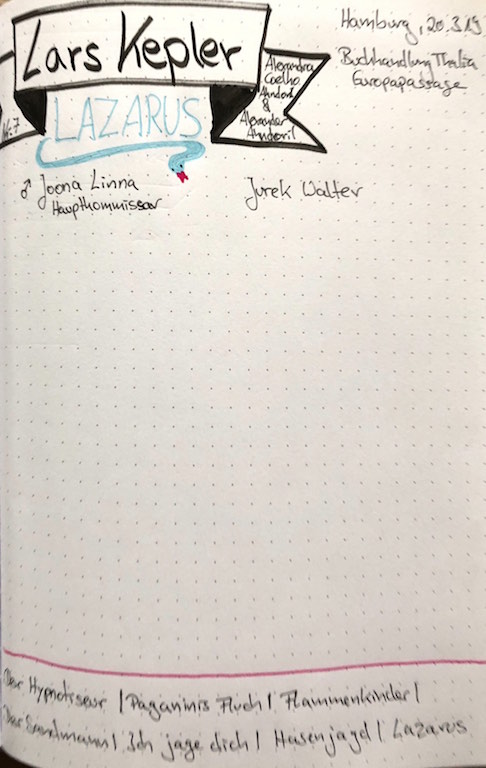 Lars Kepler
Hamburg, 20.3.19
Buchhandlung Thalia
Europapassage
Alexandra
Coelho
Ahndoril
&
Alexander
Ahndoril
Nr. 7
LAZARUS
♂ Joona Linna
Hauptkommissar
Jurek Walter
Der Hypnotiseur | Paganinis Fluch | Flammenkinder |
Der Sandmann | Ich jage dich | Hasenjagd | Lazarus